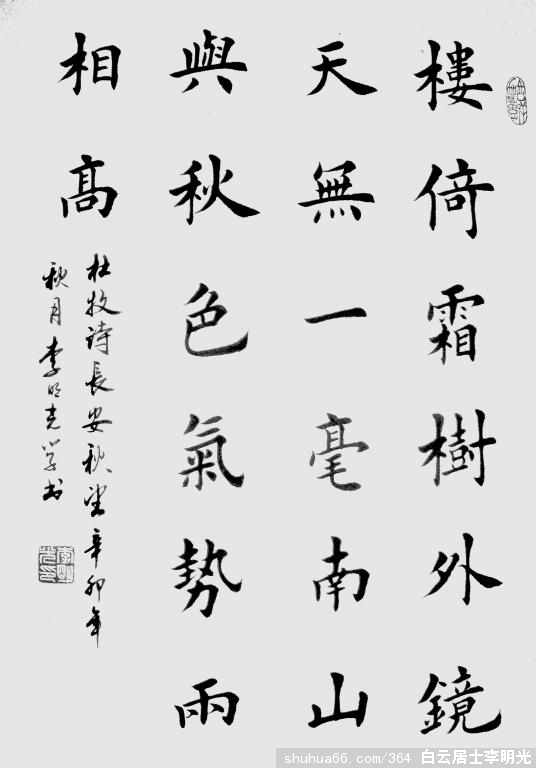 樓倚霜樹外鏡
天無一毫南山
與秋色氣勢兩
相高
杜牧诗長安秋望辛卯年
秋月李明光学书
shuhua66.com/364 白云居士李明光